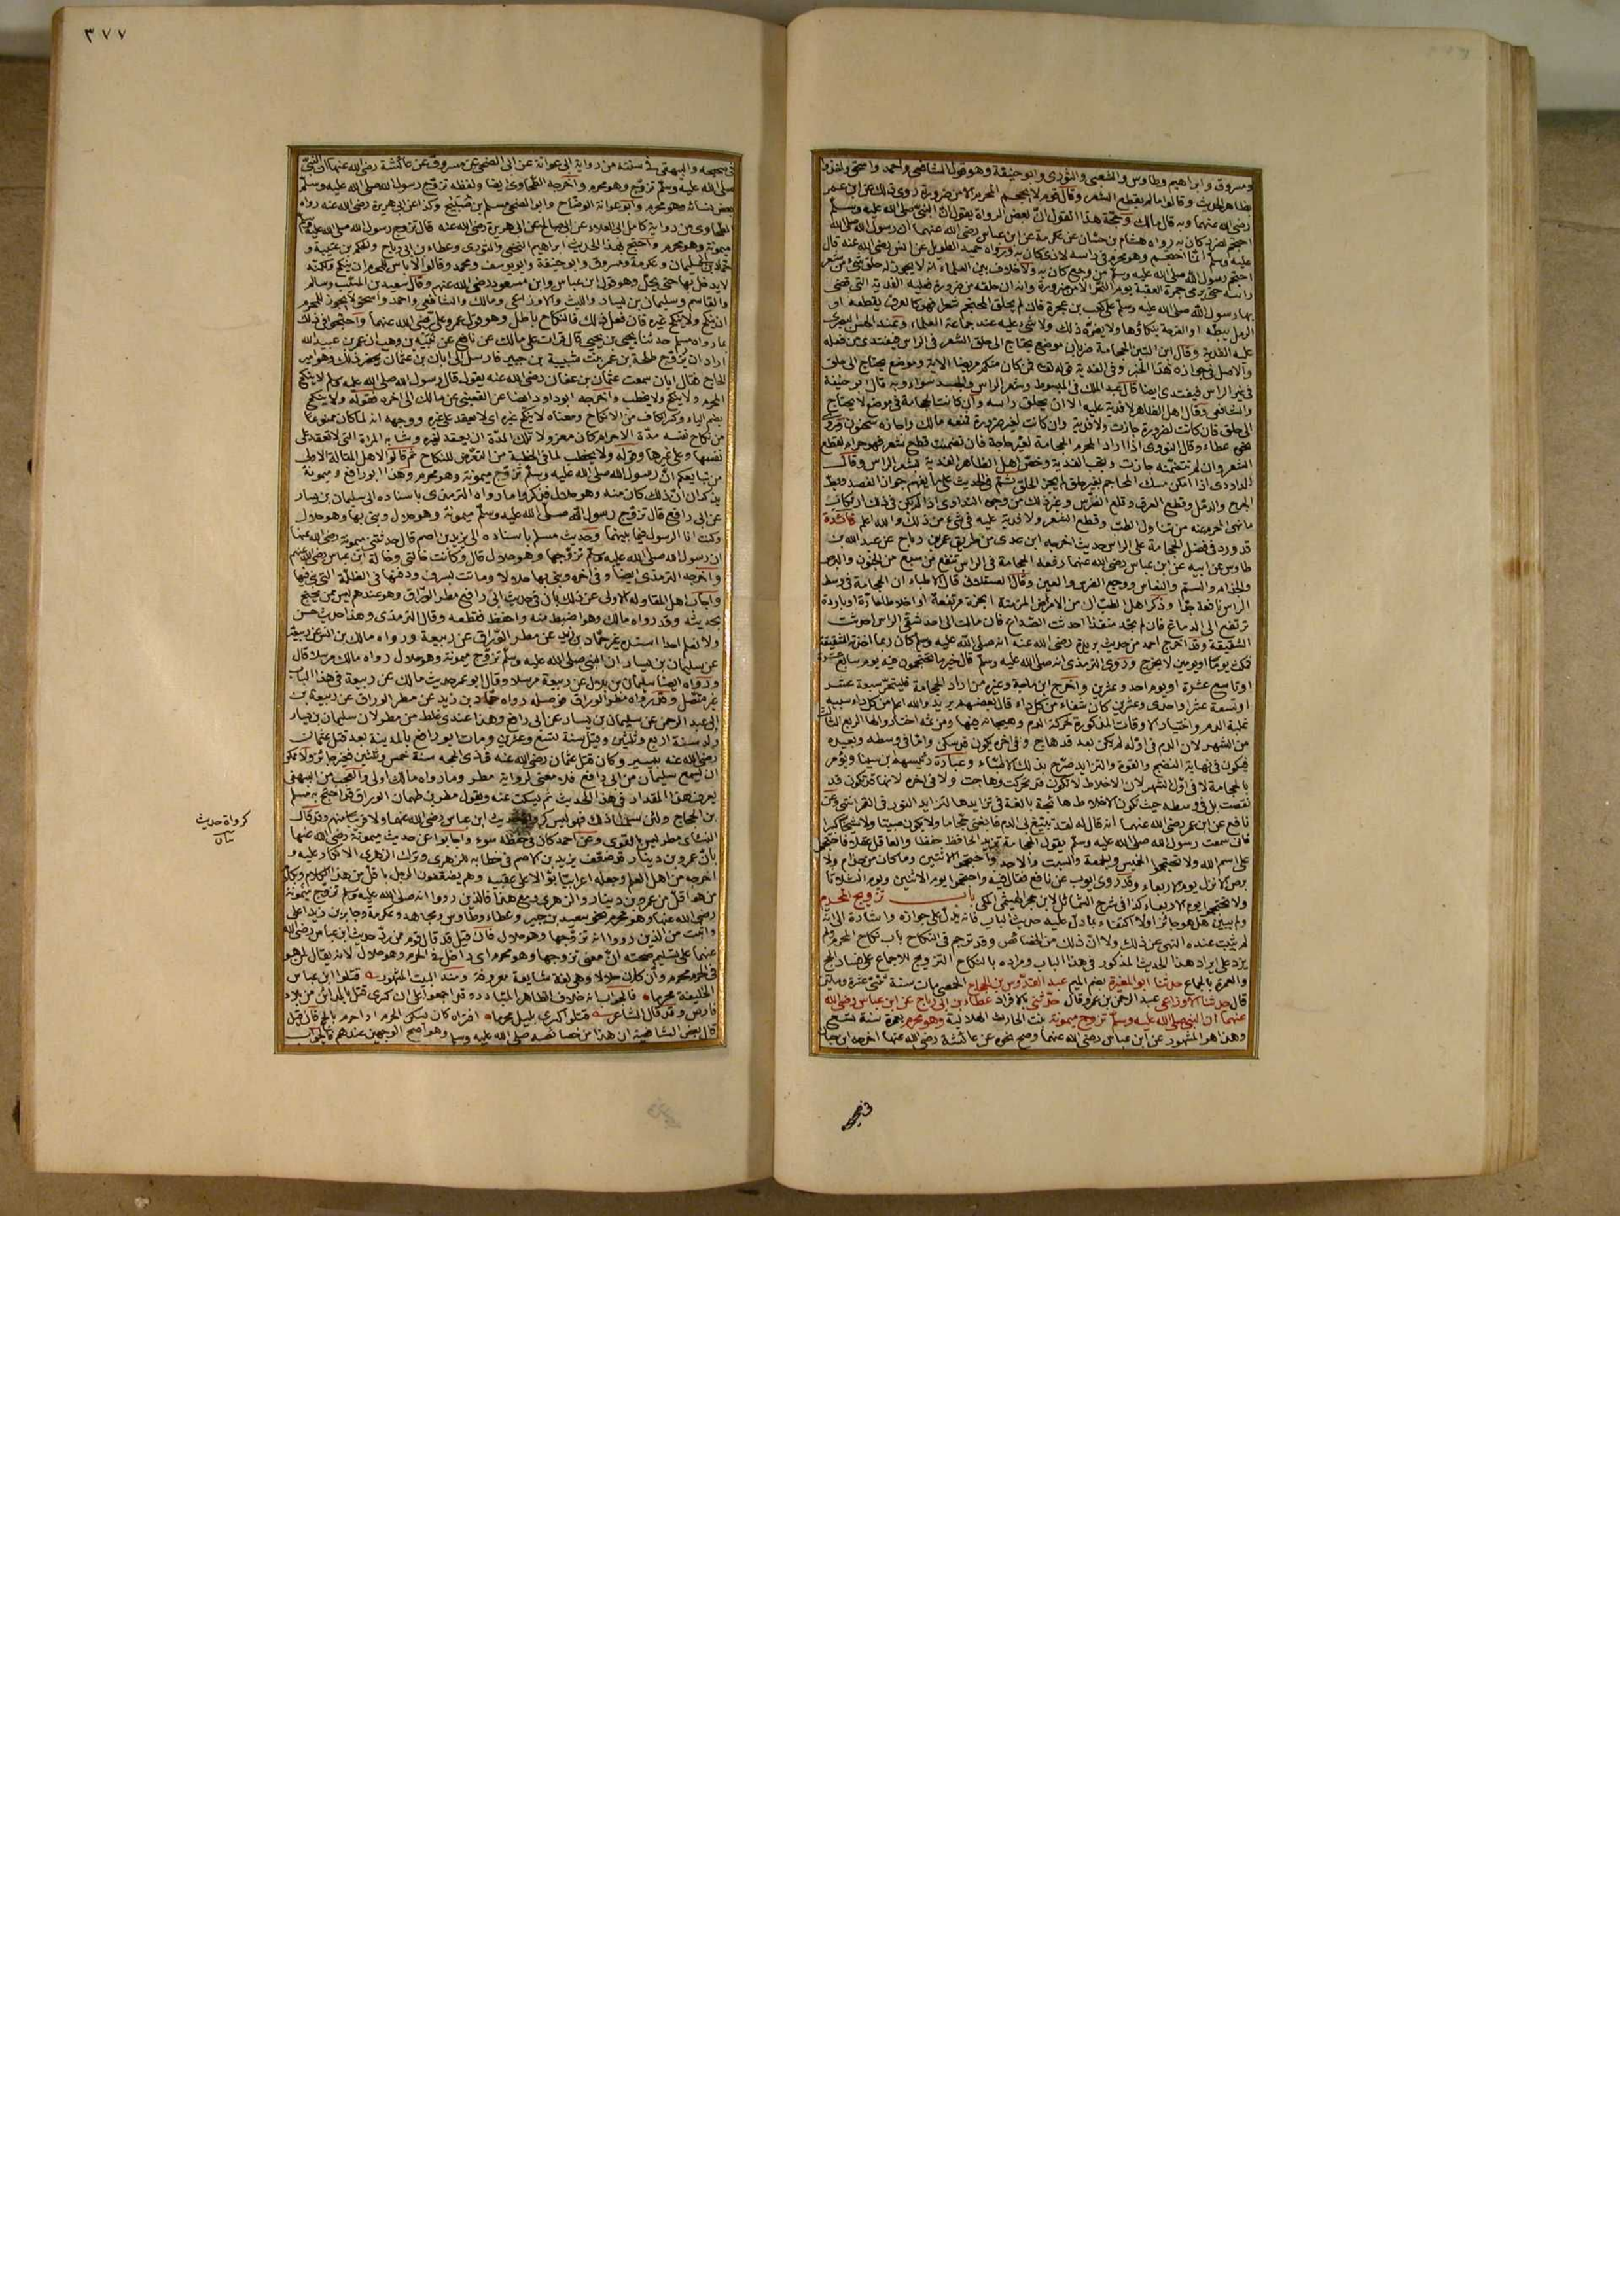 ومسروق وابراهيم وطاوس والشعبى والثورى وابو حنيفة وهو قول الشافعى واحمد واسحق واخذوا
بظاهر الحديث وقالوا ما لم يقطع الشعر وقال قوم لا يحتجم المحرم الا من ضرورة روى ذلك عن ابن عمر
رضى الله عنهما وبه قال مالك وحجة هذا القول ان بعض الرواة يقول ان النبى صلى الله عليه وسلم
احتجم لضرر كان به رواه هشام بن حسان عن عكرمة عن ابن عباس رضى الله عنهما ان رسول الله صلى الله
عليه وسلم انما احتجم وهو محرم فى راسه لاذى كان به ورواه حميد الطويل عن انس رضى الله عنه قال
احتجم رسول الله صلى الله عليه وسلم من وجع كان به ولا خلاف بين العلماء انه لا يجوز له حلق شئ من شعر
راسه حتى يرمى جمرة العقبة يوم النحر الا من ضرورة وانه ان حلقه من ضرورة فعليه الفدية التى قضى
بها رسول الله صلى الله عليه وسلم على كعب بن عجرة فان لم يحلق المحتجم شعرا فهو كالعرق يقطعه او
الدمل يبطه او القرحة ينكاؤها ولا يضره ذلك ولا شئ عليه عند جماعة العلماء وعند الحسن البصرى
عليه الفدية وقال ابن التين الحجامة ضربان موضع يحتاج الى حلق الشعر فى الراس فيفتدى من فعله
والاصل فى جوازه هذا الخبر وفى الفدية قوله تعالى فمن كان منكم مريضا الاية وموضع يحتاج الى حلق
فى غير الراس فيفتدى ايضا قال عبد الملك فى المبسوط وشعر الراس والجسد سواء وبه قال ابو حنيفة
والشافعى وقال اهل الظاهر لا فدية عليه الا ان يحلق راسه وان كانت الحجامة فى موضع لا يحتاج
الى حلق فان كانت لضرورة جازت ولا فدية وان كانت لغير ضرورة فمنعه مالك واجازه سحنون وروى
نحوه عطاء وقال النووى اذا اراد المحرم الحجامة لغير حاجة فان تضمنت قطع شعر فهو حرام لقطع
الشعر وان لم تتضمنه جازت وتجب الفدية وخص اهل الظاهر الفدية بشعر الراس وقال
الداودى اذا امكن مسك المحاجم بغير حلق لم يجز الحلق ثم فى الحديث على ما يفهم جواز الفصد وبط
الجرح والدمل وقطع العرق وقلع الضرس وغير ذلك من وجوه التداوى اذا لم يكن فى ذلك ارتكاب
ما نهى المحرم عنه من تناول الطيب وقطع الشعر ولا فدية عليه فى شئ من ذلك والله اعلم فائدة
قد ورد فى فضل الحجامة على الراس حديث اخرجه ابن عدى من طريق عمر بن رباح عن عبد الله بن
طاوس عن ابيه عن ابن عباس رضى الله عنهما رفعه الحجامة فى الراس تنفع من سبع من الجنون والبرص
والجذام والسم والنعاس ووجع الضرس والعين وقال العسقلانى قال الاطباء ان الحجامة فى وسط
الراس نافعة جدا وذكر اهل الطب ان من الامراض المزمنة ابخرة مرتفعة او اخلاط حارة او باردة
ترتفع الى الدماغ فان لم تجد منفذا احدثت الصداع فان مالت الى احد شقى الراس احدثت
الشقيقة وقد اخرج احمد من حديث بريدة رضى الله عنه انه صلى الله عليه وسلم كان ربما اخذته الشقيقة
فمكث يوما او يومين لا يخرج وروى الترمذى انه صلى الله عليه وسلم قال خير ما تحتجمون فيه يوم سابع عشرة
او تاسع عشرة او يوم احد وعشرين واخرج ابن ماجة وغيره من اراد الحجامة فليتحر سبعة عشر
او تسعة عشر واحدى وعشرين كان شفاء من كل داء قال بعضهم يريد والله اعلم من كل داء سببه
غلبة الدم واختيار الاوقات المذكورة لحركة الدم وهيجانه فيها ومن ثمه اختاروا لها الربع الثالث
من الشهر لان الدم فى اوله لم يكن بعد قد هاج وفى اخره يكون قد سكن واما فى وسطه وبعيده
فيكون فى نهاية النضج والقوة والتزايد صرح بذلك الاطباء وعبارة رئيسهم ابن سينا ويؤمر
بالحجامة لا فى اول الشهر لان الاخلاط لا تكون قد تحركت وهاجت ولا فى اخره لانها قد تكون قد
نقصت بل فى وسطه حيث تكون الاخلاط هائجة بالغة فى تزايدها لتزايد النور فى القمر انتهى وعن
نافع عن ابن عمر رضى الله عنهما انه قال له لقد تبيغ بى الدم فابغنى حجاما ولا يكون صبيا ولا شيخا كبيرا
فانى سمعت رسول الله صلى الله عليه وسلم يقول الحجامة تزيد الحافظ حفظا والعاقل عقلا فاحتجموا
على اسم الله ولا تحتجموا الخميس والجمعة والسبت والاحد واحتجموا الاثنين وما كان من جذام ولا
برص الا نزل يوم الاربعاء وقد روى ايوب عن نافع فقال فيه واحتجموا يوم الاثنين ويوم الثلاثا
ولا تحتجموا يوم الاربعاء كذا فى شرح الشمائل لابن حجر الهيتمى المكى باب تزويج المحرم
ولم يبين هل هو جائز اولا اكتفاء بما دل عليه حديث الباب فانه يدل على جوازه واشارة الى انه
لم يثبت عنده النهى عن ذلك ولا ان ذلك من الخصائص وقد ترجم فى النكاح باب نكاح المحرم ولم
يزد على ايراد هذا الحديث المذكور فى هذا الباب ومراده بالنكاح التزويج للاجماع على فساد الحج
والعمرة بالجماع حدثنا ابو المغيرة بضم الميم عبد القدوس بن الحجاج الحمصى مات سنة ثنتى عشرة ومائتين
قال حدثنا الاوزاعى عبد الرحمن بن عمرو قال حدثنى بالافراد عطاء بن ابى رباح عن ابن عباس رضى الله
عنهما ان النبى صلى الله عليه وسلم تزوج ميمونة بنت الحارث الهلالية وهو محرم بعمرة سنة سبع
وهذا هو المشهور عن ابن عباس رضى الله عنهما وصح نحوه عن عائشة رضى الله عنها اخرجه ابن حبان
فى صحيحه
٣٧٧
فى صحيحه والبيهقى فى سننه من رواية ابى عوانة عن ابى الضحى عن مسروق عن عائشة رضى الله عنها ان النبى
صلى الله عليه وسلم تزوج وهو محرم واخرجه الطحاوى ايضا ولفظه تزوج رسول الله صلى الله عليه وسلم
بعض نسائه وهو محرم وابو عوانة الوضاح وابو الضحى مسلم بن صبيح وكذا عن ابى هريرة رضى الله عنه رواه
الطحاوى من رواية كامل ابى العلاء عن ابى صالح عن ابى هريرة رضى الله عنه قال تزوج رسول الله صلى الله عليه وسلم
ميمونة وهو محرم واحتج بهذا الحديث ابراهيم النخعى والثورى وعطاء بن ابى رباح والحكم بن عتيبة و
حماد بن ابى سليمان وعكرمة ومسروق وابو حنيفة وابو يوسف ومحمد وقالوا لا باس للمحرم ان ينكح ولكنه
لا يدخل بها حتى يحل وهو قول ابن عباس وابن مسعود رضى الله عنهم وقال سعيد بن المسيب وسالم
والقاسم وسليمان بن يسار والليث والاوزاعى ومالك والشافعى واحمد واسحق لا يجوز للمحرم
ان ينكح ولا ينكح غيره فان فعل ذلك فالنكاح باطل وهو قول عمر وعلى رضى الله عنهما واحتجوا فى ذلك
بما رواه مسلم حدثنا يحيى بن يحيى قال قرات على مالك عن نافع عن نبيه بن وهب ان عمر بن عبيد الله
اراد ان يزوج طلحة بن عمر بنت شيبة بن جبير فارسل الى ابان بن عثمان يحضر ذلك وهو امير
الحاج فقال ابان سمعت عثمان بن عفان رضى الله عنه يقول قال رسول الله صلى الله عليه وسلم لا ينكح
المحرم ولا ينكح ولا يخطب واخرجه ابو داود ايضا عن القعنبى عن مالك الى اخره فقوله ولا ينكح
بضم الياء وكسر الكاف من الانكاح ومعناه لا ينكح غيره اى لا يعقد على غيره ووجهه انه لما كان ممنوعا
من نكاح نفسه مدة الاحرام كان معزولا تلك المدة ان يعقد لغيره وشابه المراة التى لا تعقد على
نفسها وعلى غيرها وقوله ولا يخطب لما فى الخطبة من التعرض للنكاح ثم قالوا لاهل المقالة الاولى
من تبايعكم ان رسول الله صلى الله عليه وسلم تزوج ميمونة وهو محرم وهذا ابو رافع وميمونة
يذكران ان ذلك كان منه وهو حلال فذكروا ما رواه الترمذى باسناده الى سليمان بن يسار
عن ابى رافع قال تزوج رسول الله صلى الله عليه وسلم ميمونة وهو حلال وبنى بها وهو حلال
وكنت انا الرسول فيما بينهما وحديث مسلم باسناده الى يزيد بن الاصم قال حدثتنى ميمونة رضى الله عنها
ان رسول الله صلى الله عليه وسلم تزوجها وهو حلال قال وكانت خالتى وخالة ابن عباس رضى الله عنهم
واخرجه الترمذى ايضا وفى اخره وبنى بها حلالا وماتت بسرف ودفنها فى الظلة التى بنى فيها
واجاب اهل المقاولة الاولى عن ذلك بان فى حديث ابى رافع مطر الوراق وهو عندهم ليس ممن يحتج
بحديثه وقد رواه مالك وهو اضبط منه واحفظ فقطعه وقال الترمذى وهذا حديث حسن
ولا نعلم احدا اسنده غير حماد بن زيد عن مطر الوراق عن ربيعة ورواه مالك بن انس عن ربيعة
عن سليمان بن يسار ان النبى صلى الله عليه وسلم تزوج ميمونة وهو حلال رواه مالك مرسلا قال
ورواه ايضا سليمان بن بلال عن ربيعة مرسلا وقال ابو عمر حديث مالك عن ربيعة فى هذا الباب
غير متصل وقد رواه مطر الوراق فوصله رواه حماد بن زيد عن مطر الوراق عن ربيعة بن
ابى عبد الرحمن عن سليمان بن يسار عن ابى رافع وهذا عندى غلط من مطر لان سليمان بن يسار
ولد سنة اربع وثلثين وقيل سنة سبع وعشرين ومات ابو رافع بالمدينة بعد قتل عثمان
رضى الله عنه بيسير وكان قتل عثمان رضى الله عنه فى ذى الحجه سنة خمس وثلثين فغير جائز ولا ممكن
ان يسمع سليمان من ابى رافع فلا معنى لرواية مطر وما رواه مالك اولى والعجب من البيهقى
يعرف هذا المقدار فى هذا الحديث ثم يسكت عنه ويقول مطر بن طهمان الوراق قد احتج به مسلم
بن الحجاج ولئن سلمنا ذلك فهو ليس كرواة حديث ابن عباس رضى الله عنهما ولا قريبا منهم وقد قال
النسائى مطر ليس بالقوى وعن احمد كان فى حفظه سوء واجابوا عن حديث ميمونة رضى الله عنها
بان عمرو بن دينار قد ضعف يزيد بن الاصم فى خطابه للزهرى وترك الزهرى الانكار عليه و
اخرجه من اهل العلم وجعله اعرابيا بوالا على عقبيه وهم يضعفون الرجل باقل من هذا الكلام وبكلام
من هو اقل من عمرو بن دينار والزهرى ومع هذا فالذين رووا انه صلى الله عليه وسلم تزوج ميمونة
رضى الله عنها وهو محرم نحو سعيد بن جبير وعطاء وطاوس ومجاهد وعكرمة وجابر بن زيد اعلى
واثبت من الذين رووا انه تزوجها وهو حلال فان قيل قد قال قوم ممن رد حديث ابن عباس رضى الله
عنهما على تسليم صحته ان معنى تزوجها وهو محرم اى داخل فى الحرم وهو حلال لانه يقال لمن هو
فى الحرم محرم وان كان حلالا وهى لغة شايعة معروفة ومنه البيت المشهور قتلوا ابن عفان
الخليفة محرما فالجواب انه خلاف الظاهر المتبادر وقد اجمعوا على ان كسرى قتل بالمدائن من بلاد
فارس وقد قال الشاعر قتلوا كسرى بليل محرما افتراه كان يسكن الحرم او احرم بالحج فان قيل
قال بعض الشافعية ان هذا من خصائصه صلى الله عليه وسلم وهو اصح الوجهين عندهم فالجواب
كرواة حديث